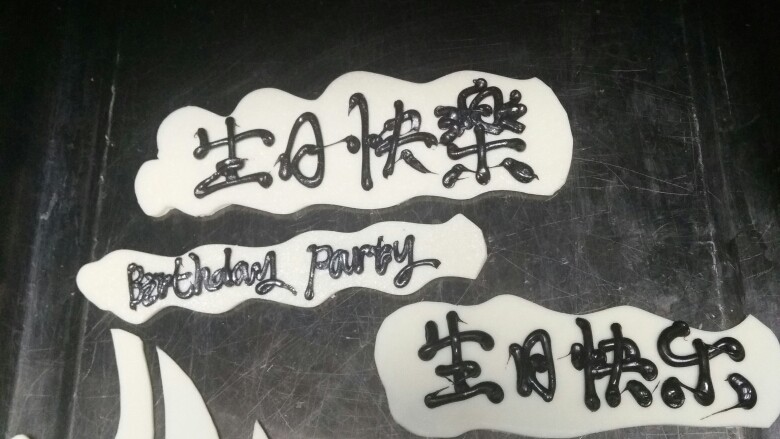 生日快樂
Birthday Party
生日快乐